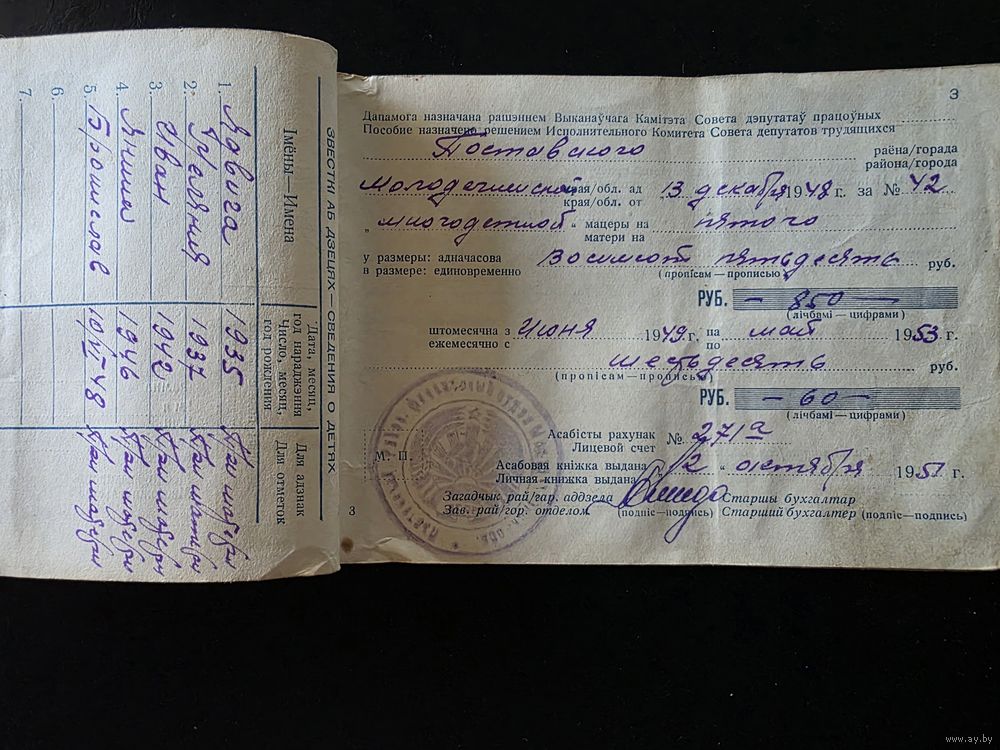 ЗВЕСТКІ АБ ДЗЕЦЯХ — СВЕДЕНИЯ О ДЕТЯХ
Імёны—Имена
Дата, месяц, год нараджэння
Число, месяц, год рождения
Для адзнак
Для отметок
1. Ядвига 1935 При матери
2. 1937 При матери
3. Иван 1942 При матери
4. Янина 1946 При матери
5. Бронислав 10/VI 48 При матери
6.
7.
3
3
Дапамога назначана рашэннем Выканаўчага Камітэта Совета дэпутатаў працоўных
Пособие назначено решением Исполнительного Комитета Совета депутатов трудящихся
Поставского раёна/горада
района/города
Молодечненской края/обл. ад 13 декабря 1948 г. за № 42
края/обл. от
„многодетной“ мацеры на пятого
матери на
у размеры: адначасова Восемсот пятьдесять руб.
в размере: единовременно (пропісам—прописью)
РУБ. — 850 —
(лічбамі—цифрами)
штомесячна з Июня 1949 г. па май 1953 г.
ежемесячно с по
шестьдесять руб.
(пропісам—прописью)
РУБ. — 60 —
(лічбамі—цифрами)
Асабісты рахунак № 271а
Лицевой счет
М. П.
Асабовая кніжка выдана „12“ октября 1951 г.
Личная книжка выдана
Загадчык рай/гар. аддзела Старшы бухгалтар
Зав. рай/гор. отделом (подпіс—подпись) Старший бухгалтер (подпіс—подпись)
www.ay.by